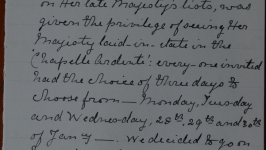 on Her late Majesty's lists, was
given the privilege of seeing Her
Majesty laid-in-state in the
"Chapelle ardente": every-one invited
had the choice of three days to
choose from — Monday, Tuesday
and Wednesday, 28th, 29th and 30th
of Jany —. We decided to go on